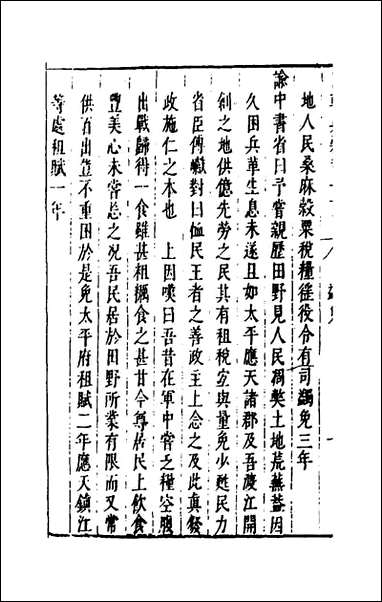 地人民桑麻穀粟稅糧徭役令有司蠲免三年
諭中書省曰予嘗親歷田野見人民凋弊土地荒蕪葢因
久困兵革生息未遂且如太平應天諸郡及吾渡江開
創之地供億先勞之民其有租稅宜與量免少甦民力
省臣傅瓛對曰恤民王者之善政主上念之及此真發
政施仁之本也　上因嘆曰吾昔在軍中嘗乏糧空腹
出戰歸得一食雖甚粗糲食之甚甘今尊居民上飲食
豐美心未嘗忘之况吾民居於田野所業有限而又常
供百出豈不重困於是免太平府租賦二年應天鎮江
等處租賦一年